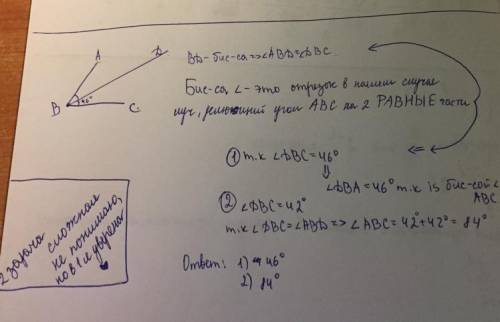 A
D
B
46°
C
BD - бис-са => ∠ABD = ∠DBC.
Бис-са ∠ - это отрезок в нашем случае
луч, делющий угол ABC на 2 РАВНЫЕ части
<=
① т.к ∠DBC = 46°
⇓
∠DBA = 46° т.к is бис-сой ∠
ABC
② ∠DBC = 42°
т.к ∠DBC = ∠ABD => ∠ABC = 42° + 42° = 84°
Ответ: 1) 46°
2) 84°
2 задача сложная
не понимаю,
но в 1 я уверена